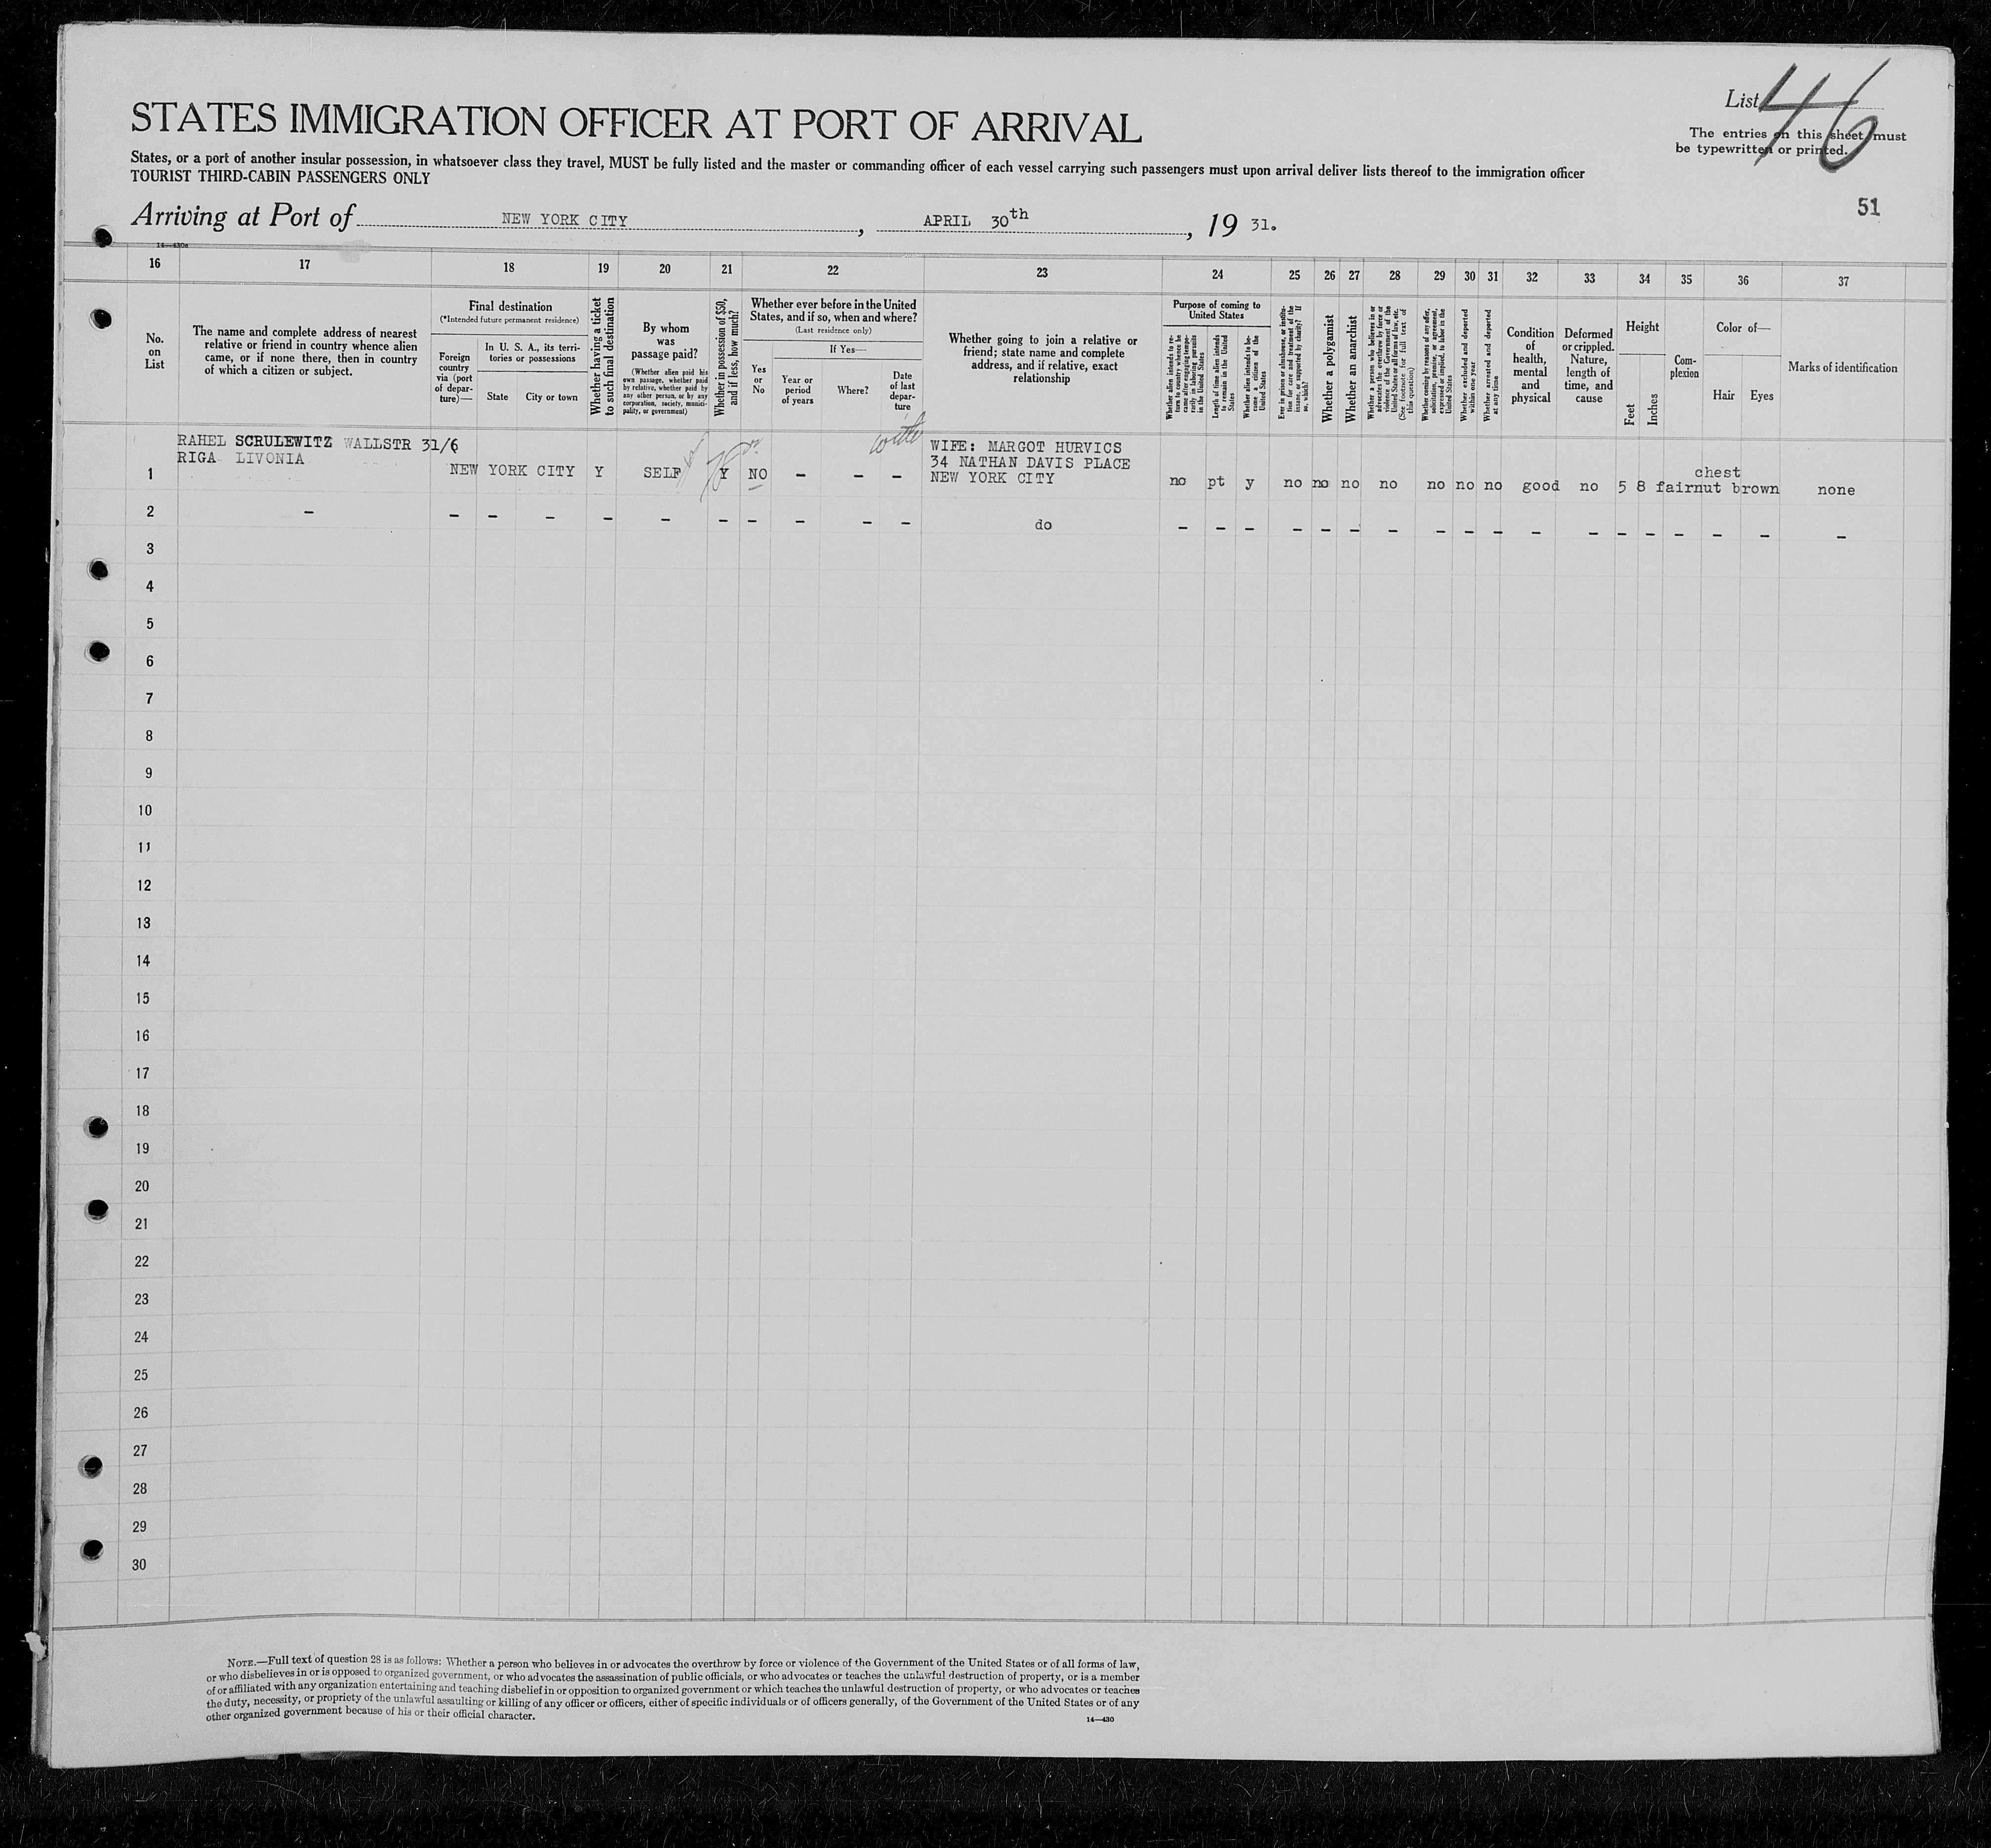 List 46
The entries on this sheet must
be typewritten or printed.
STATES IMMIGRATION OFFICER AT PORT OF ARRIVAL
States, or a port of another insular possession, in whatsoever class they travel, MUST be fully listed and the master or commanding officer of each vessel carrying such passengers must upon arrival deliver lists thereof to the immigration officer
TOURIST THIRD-CABIN PASSENGERS ONLY
51
Arriving at Port of NEW YORK CITY, APRIL 30th, 19 31.
14—430a
16 17 18 19 20 21 22 23 24 25 26 27 28 29 30 31 32 33 34 35 36 37
No.
on
List
The name and complete address of nearest
relative or friend in country whence alien
came, or if none there, then in country
of which a citizen or subject.
Final destination
(*Intended future permanent residence)
Foreign
country
via (port
of depar-
ture)—
In U. S. A., its terri-
tories or possessions
State City or town
Whether having a ticket
to such final destination
By whom
was
passage paid?
(Whether alien paid his
own passage, whether paid
by relative, whether paid by
any other person, or by any
corporation, society, munici-
pality, or government)
Whether in possession of $50,
and if less, how much?
Whether ever before in the United
States, and if so, when and where?
(Last residence only)
Yes
or
No
If Yes—
Year or
period
of years
Where?
Date
of last
depar-
ture
Whether going to join a relative or
friend; state name and complete
address, and if relative, exact
relationship
Purpose of coming to
United States
Whether alien intends to re-
turn to country whence he
came after engaging tempo-
rarily in laboring pursuits
in the United States
Length of time alien intends
to remain in the United
States
Whether alien intends to be-
come a citizen of the
United States
Ever in prison or almshouse, or institu-
tion for care and treatment of the
insane, or supported by charity? If
so, which?
Whether a polygamist
Whether an anarchist
Whether a person who believes in or
advocates the overthrow by force or
violence of the Government of the
United States or all forms of law, etc.
(See footnote for full text of
this question)
Whether coming by reasons of any offer,
solicitation, promise, or agreement,
expressed or implied, to labor in the
United States
Whether excluded and deported
within one year
Whether arrested and deported
at any time
Condition
of
health,
mental
and
physical
Deformed
or crippled.
Nature,
length of
time, and
cause
Height
Feet
Inches
Com-
plexion
Color of—
Hair Eyes
Marks of identification
RAHEL SCRULEWITZ WALLSTR 31/6
RIGA LIVONIA
1 NEW YORK CITY Y SELF Y NO – – –
WIFE: MARGOT HURVICS
34 NATHAN DAVIS PLACE
NEW YORK CITY
no pt y no no no no no no no good no 5 8 fair
chest
nut brown none
2 – – – – – – – – – – – do – – – – – – – – – – – – – – – – – –
3
4
5
6
7
8
9
10
11
12
13
14
15
16
17
18
19
20
21
22
23
24
25
26
27
28
29
30
NOTE.—Full text of question 28 is as follows: Whether a person who believes in or advocates the overthrow by force or violence of the Government of the United States or of all forms of law,
or who disbelieves in or is opposed to organized government, or who advocates the assassination of public officials, or who advocates or teaches the unlawful destruction of property, or is a member
of or affiliated with any organization entertaining and teaching disbelief in or opposition to organized government or which teaches the unlawful destruction of property, or who advocates or teaches
the duty, necessity, or propriety of the unlawful assaulting or killing of any officer or officers, either of specific individuals or of officers generally, of the Government of the United States or of any
other organized government because of his or their official character.
14—430